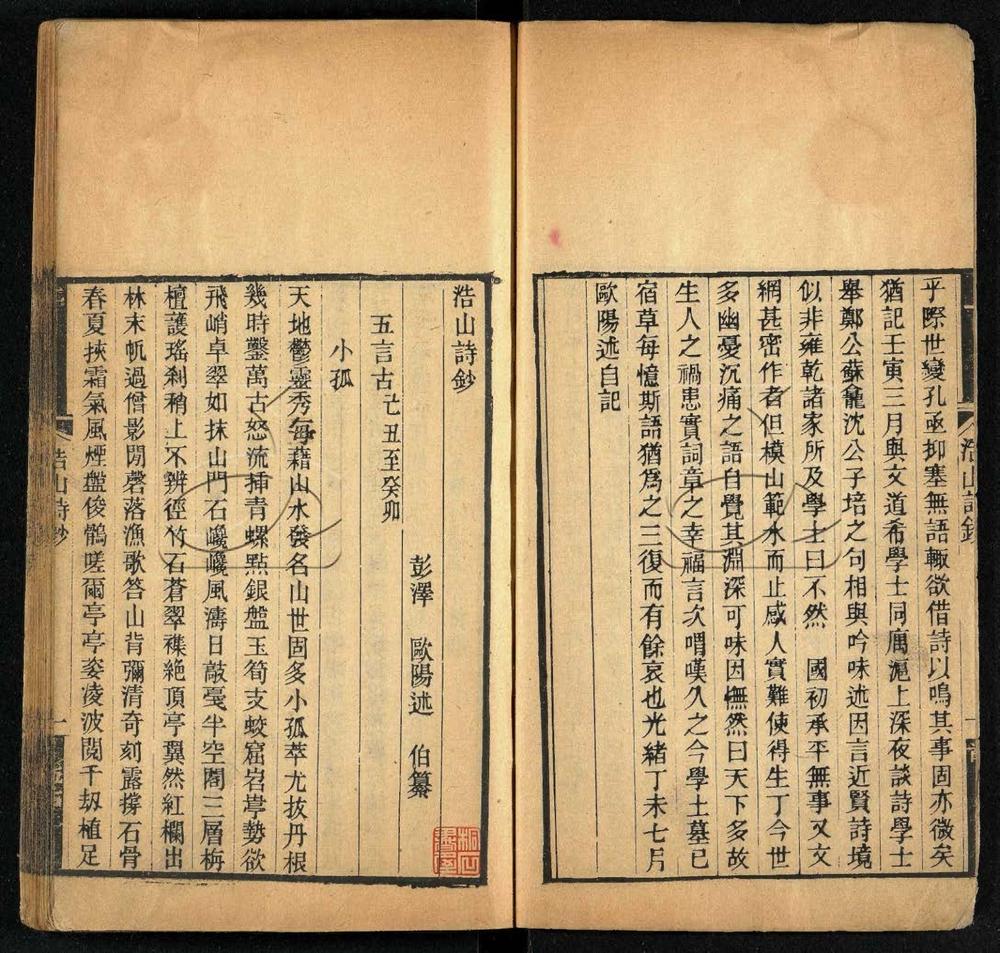 乎際世變孔亟抑塞無語輙欲借詩以鳴其事固亦微矣
猶記壬寅三月與文道希學士同寓滬上深夜談詩學士
舉鄭公蘇龕沈公子培之句相與吟味述因言近賢詩境
似非雍乾諸家所及學士曰不然 國初承平無事又文
網甚密作者但模山範水而止感人實難使得生丁今世
多幽憂沉痛之語自覺其淵深可味因憮然曰天下多故
生人之禍患實詞章之幸福言次喟嘆久之今學士墓已
宿草每憶斯語猶為之三復而有餘哀也光緒丁未七月
歐陽述自記
浩山詩鈔
一
浩山詩鈔
彭澤 歐陽述 伯纂
五言古 乙丑至癸卯
小孤
天地鬱靈秀每藉山水發名山世固多小孤萃尤拔丹根
幾時鑿萬古怒流插青螺點銀盤玉筍支蛟窟岩嶤勢欲
飛峭卓翠如抹山門石巉巉風濤日敲戞半空閣三層栴
檀護瑤剎稍上不辨徑竹石蒼翠襍絶頂亭翼然紅欄出
林末帆過僧影閒磬落漁歌答山背彌清奇刻露撐石骨
春夏挾霜氣風煙盤俊鶻嗟爾亭亭姿凌波閱千刼植足
浩山詩鈔
一